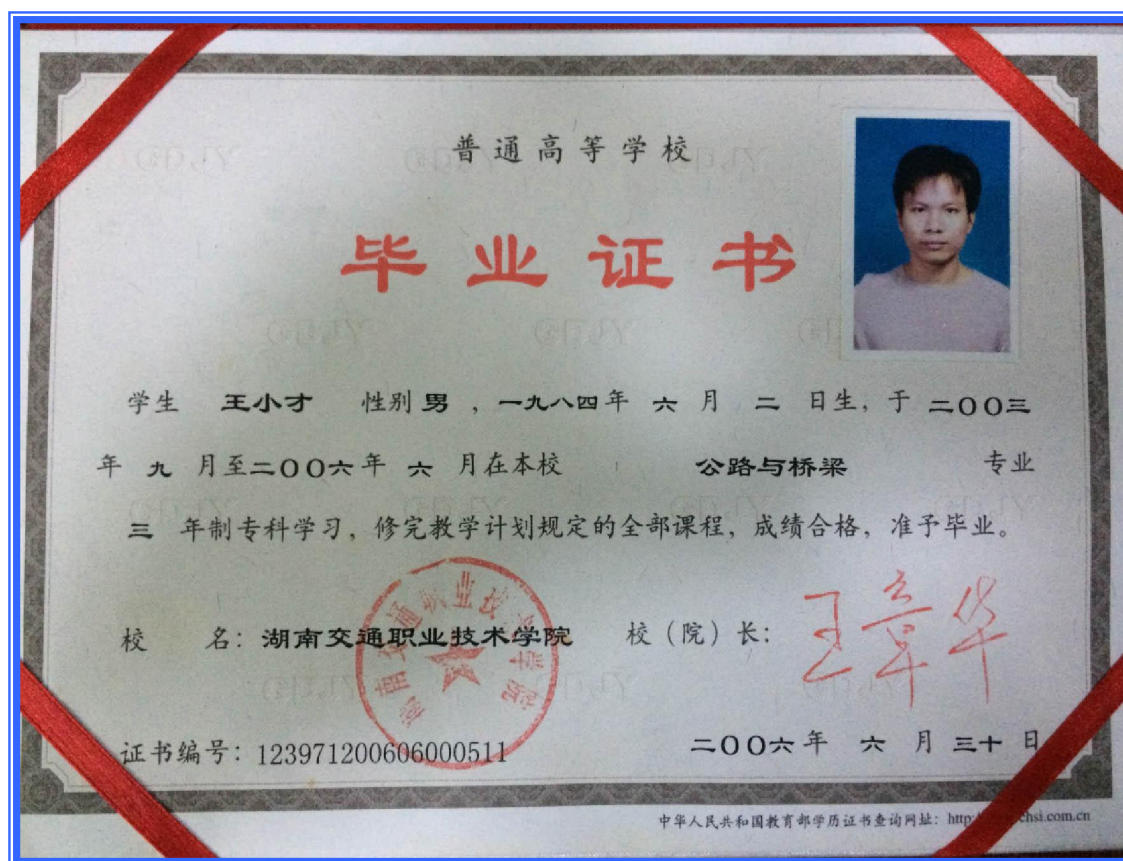 普通高等学校
毕业证书
学生 王小才 性别 男 ，一九八四年 六 月 二 日生，于 二〇〇三
年 九 月至二〇〇六年 六 月在本校 公路与桥梁 专业
三 年制专科学习，修完教学计划规定的全部课程，成绩合格，准予毕业。
校 名：湖南交通职业技术学院 校（院）长：王章华
湖南交通职业技术学院
证书编号：123971200606000511 二〇〇六年 六 月 三十 日
中华人民共和国教育部学历证书查询网址：http: chsi.com.cn